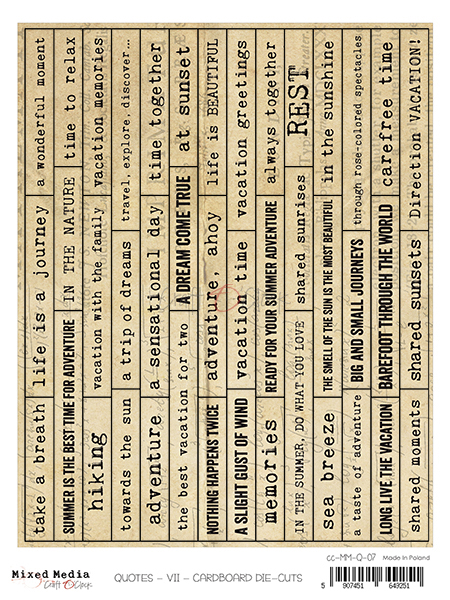 a wonderful moment
life is a journey
take a breath
time to relax
IN THE NATURE
SUMMER IS THE BEST TIME FOR ADVENTURE
vacation memories
vacation with the family
hiking
travel, explore, discover...
a trip of dreams
towards the sun
time together
a sensational day
adventure
at sunset
A DREAM COME TRUE
the best vacation for two
life is BEAUTIFUL
adventure, ahoy
NOTHING HAPPENS TWICE
vacation greetings
vacation time
A SLIGHT GUST OF WIND
always together
READY FOR YOUR SUMMER ADVENTURE
memories
REST
shared sunrises
IN THE SUMMER, DO WHAT YOU LOVE
in the sunshine
THE SMELL OF THE SUN IS THE MOST BEAUTIFUL
sea breeze
through rose-colored spectacles
BIG AND SMALL JOURNEYS
a taste of adventure
carefree time
BAREFOOT THROUGH THE WORLD
LONG LIVE THE VACATION
Direction VACATION!
shared sunsets
shared moments
Mixed Media
by Craft O'Clock
QUOTES - VII - CARDBOARD DIE-CUTS
CC-MM-Q-07
Made in Poland
5 907451 649251